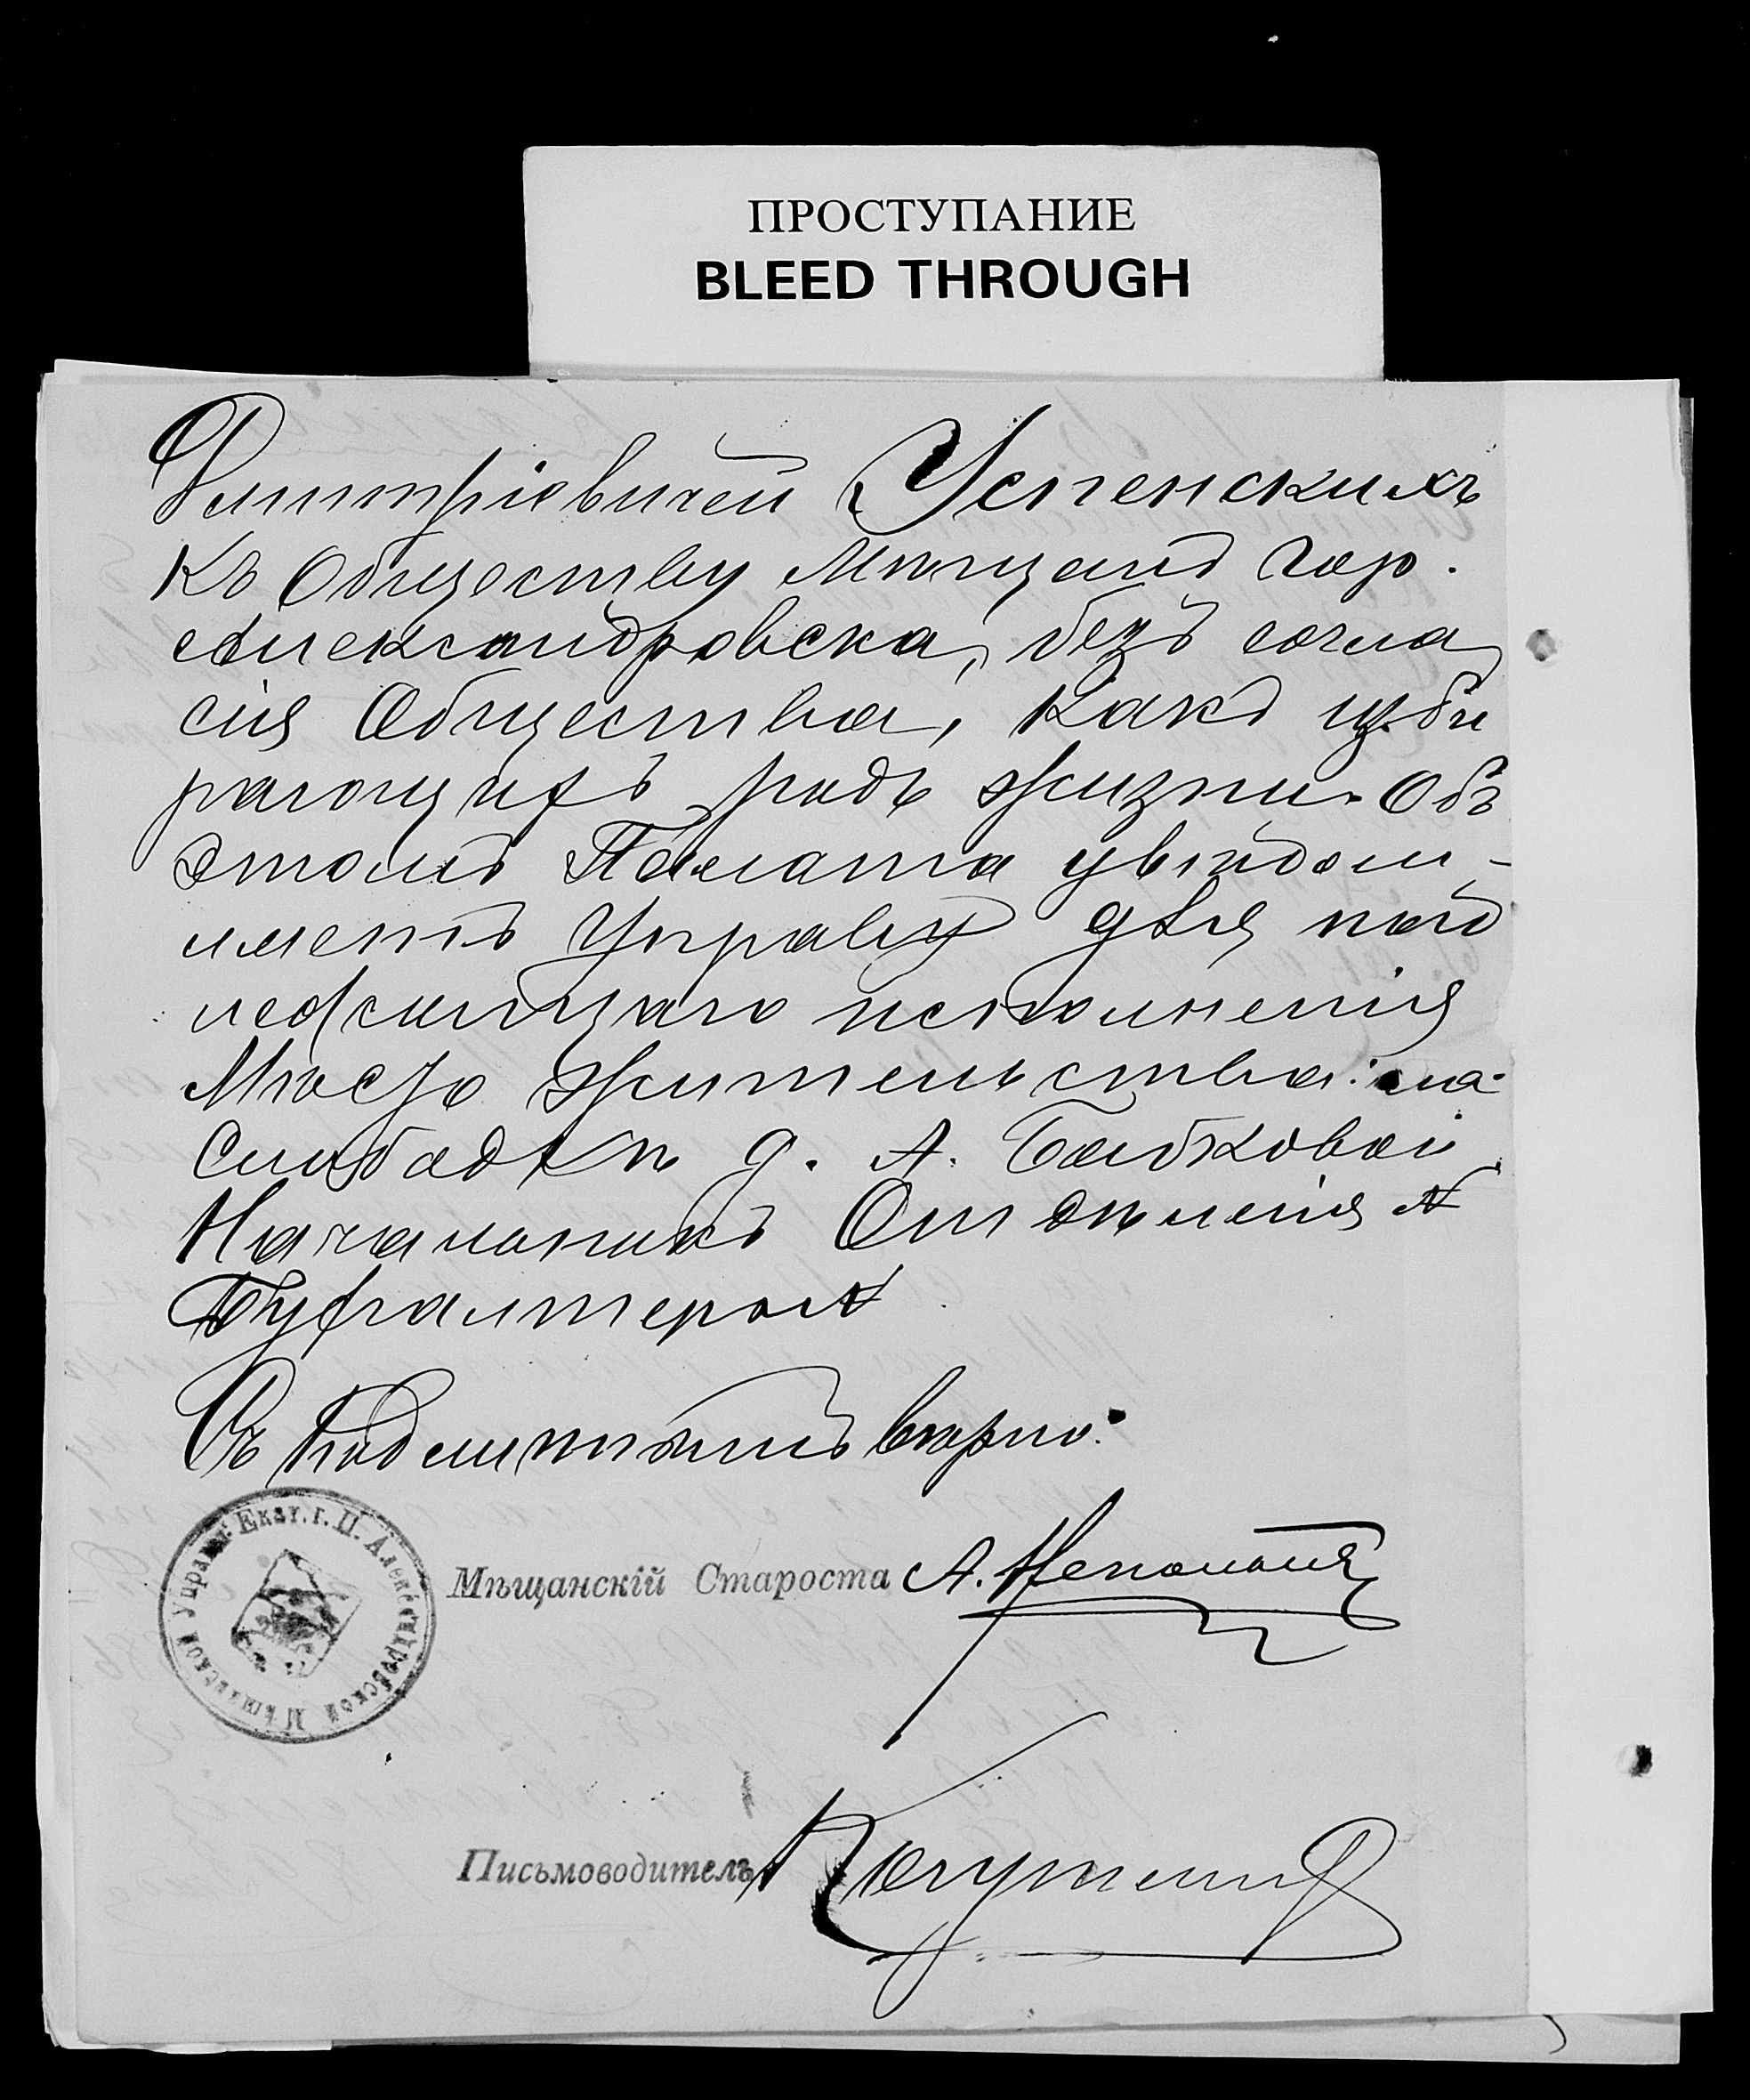 ПРОСТУПАНИЕ
BLEED THROUGH
Дмитріевичей Успенскихъ
къ Обществу Мѣщанъ гор.
Александровска, безъ согла
сія Общества, какъ изби
рающихъ родъ жизни. Объ
этомъ Палата увѣдом-
ляетъ Управу для над
лежащаго исполненія
Мѣсто жительства: на
Слободкѣ д. А. Бабковой
Начальникъ Отдѣленія
Бухгалтеръ
Съ подлиннымъ вѣрно:
Екат. г. П. Александровской Мѣщанской Управы
Мѣщанскій Староста А.
Письмоводитель